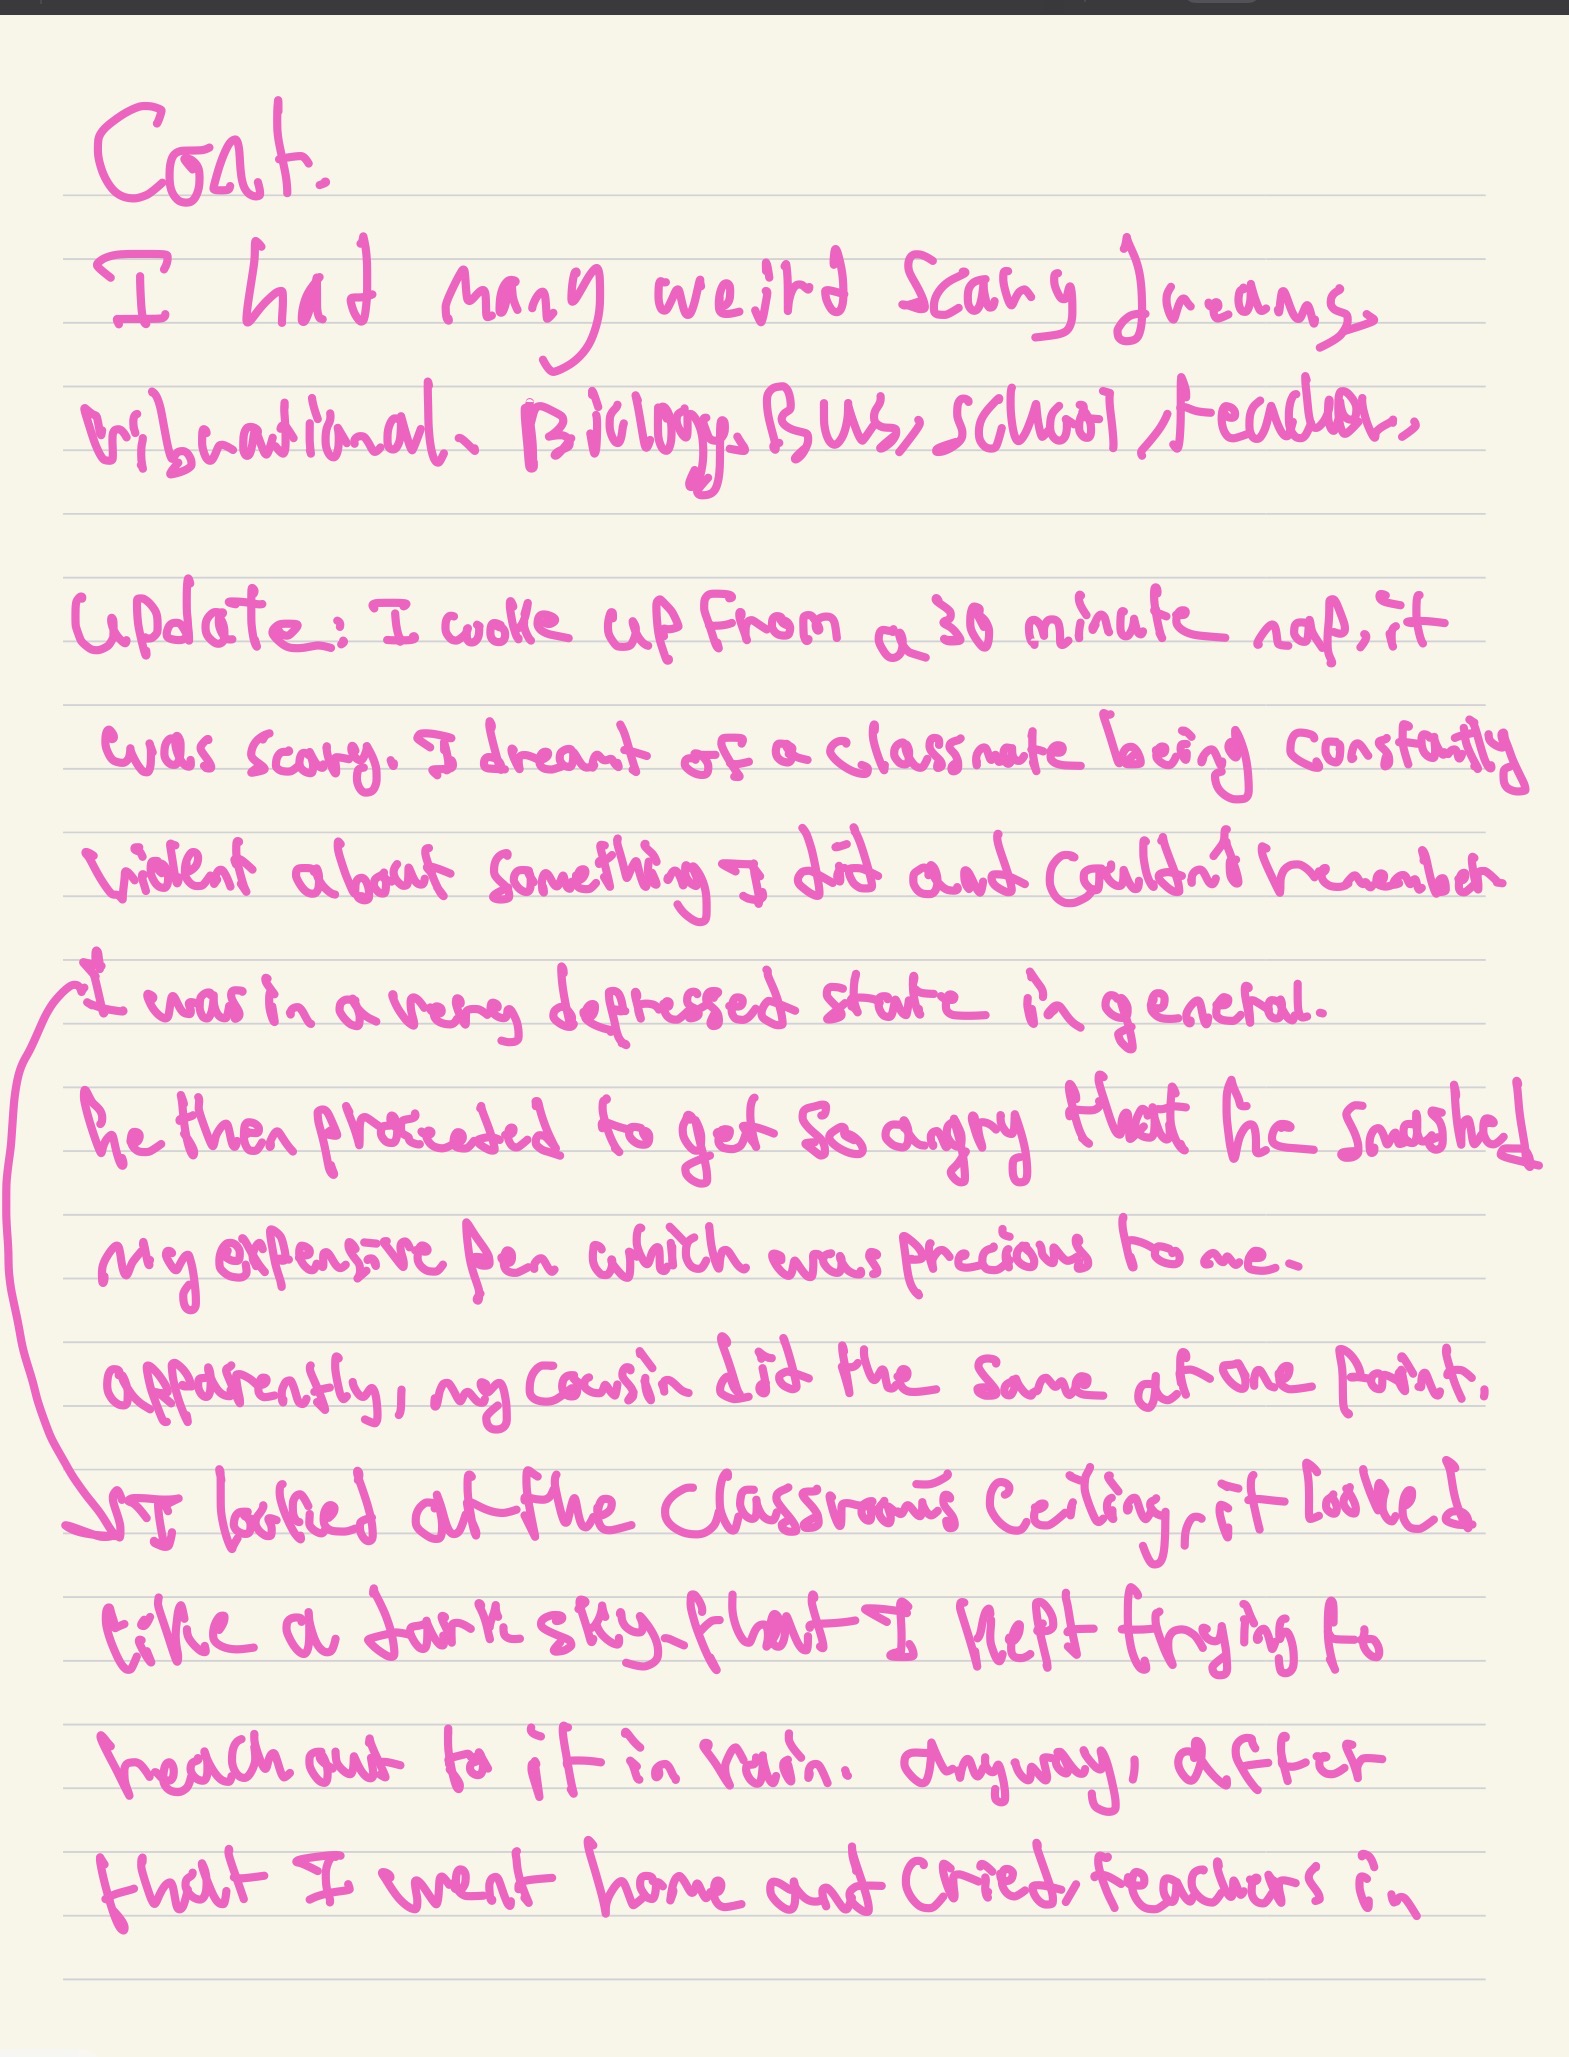 Cont.
I had many weird scary dreams,
vibrational, Biology, Bus, school, teacher,
Update: I woke up from a 30 minute nap, it
was scary. I dreamt of a classmate being constantly
violent about something I did and couldn't remember
I was in a very depressed state in general.
he then proceeded to get so angry that he smashed
my expensive pen which was precious to me.
apparently, my cousin did the same at one point.
I looked at the classroom's ceiling, it looked
like a dark sky, that I kept trying to
reach out to it in vain. anyway, after
that I went home and cried, teachers in